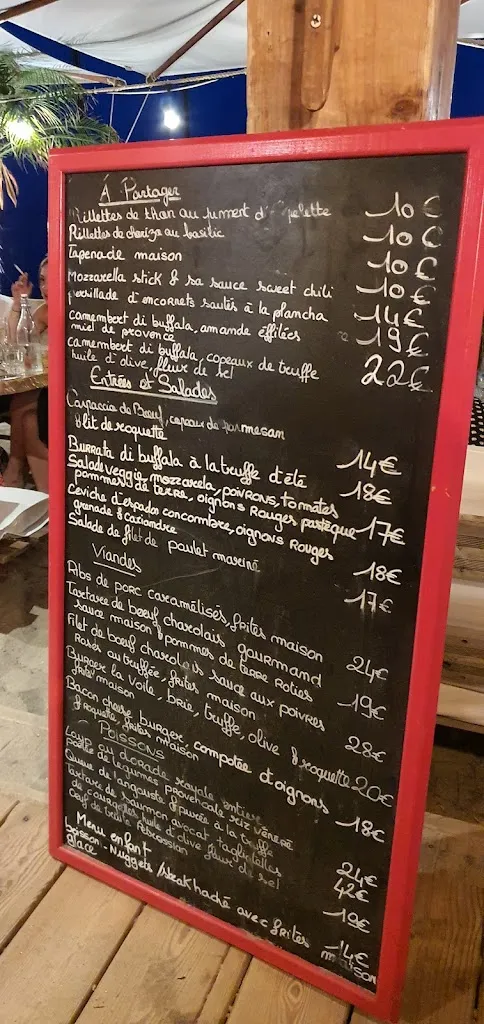 À Partager
Rillettes de thon au piment d' pelette 10€
Rillettes de chorizo au basilic 10€
Tapenade maison 10€
Mozzarella stick & sa sauce sweet chili 10€
Persillade d'encornets sautés à la plancha 14€
Camembert di buffala, amande effilées 19€
miel de provence
Camembert di buffala, copeaux de truffe 22€
huile d'olive, fleur de sel
Entrées et Salades
Carpaccio de Boeuf, copeaux de parmesan
& lit de roquette 14€
Burrata di buffala à la truffe d'été 18€
Salade veggie, mozzarela, poivrons, tomates
pommes de terre, oignons Rouges pastèque 17€
Ceviche d'espadon concombre, oignons Rouges
grenade & Coriandre 18€
Salade de filet de poulet mariné 17€
Viandes
Ribs de porc caramélisés, frites maison 24€
Tartare de boeuf charolais gourmand
sauce maison & pommes de terre roties 19€
Filet de boeuf charolais sauce aux poivres 28€
Rosés au truffée, frites maison
Burger la Voile, brie, truffe, olive & roquette 20€
frites maison
Bacon cheese burger compotée d'oignons
& roquette, frites maison 18€
POISSONS
Loup ou dorade royale entière
poêlée de légumes provençale riz vénéré 24€
Queue de langouste & purée à la truffe 42€
Tartare de saumon avocat, tagliatelles
de courgettes, huile d'olive fleur de sel 19€
Menu enfant 14€
boisson - Nuggets / steak haché avec frites maison
glace